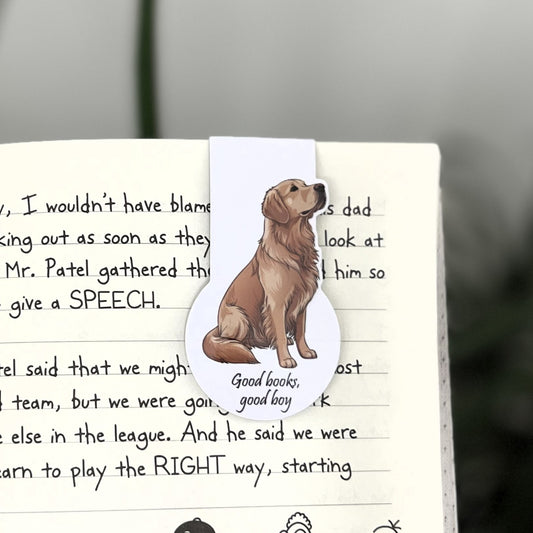 , I wouldn't have blame s dad
king out as soon as they look at
Mr. Patel gathered th him so
give a SPEECH.
tel said that we migh ost
team, but we were goin k
else in the league. And he said we were
earn to play the RIGHT way, starting
Good books,
good boy